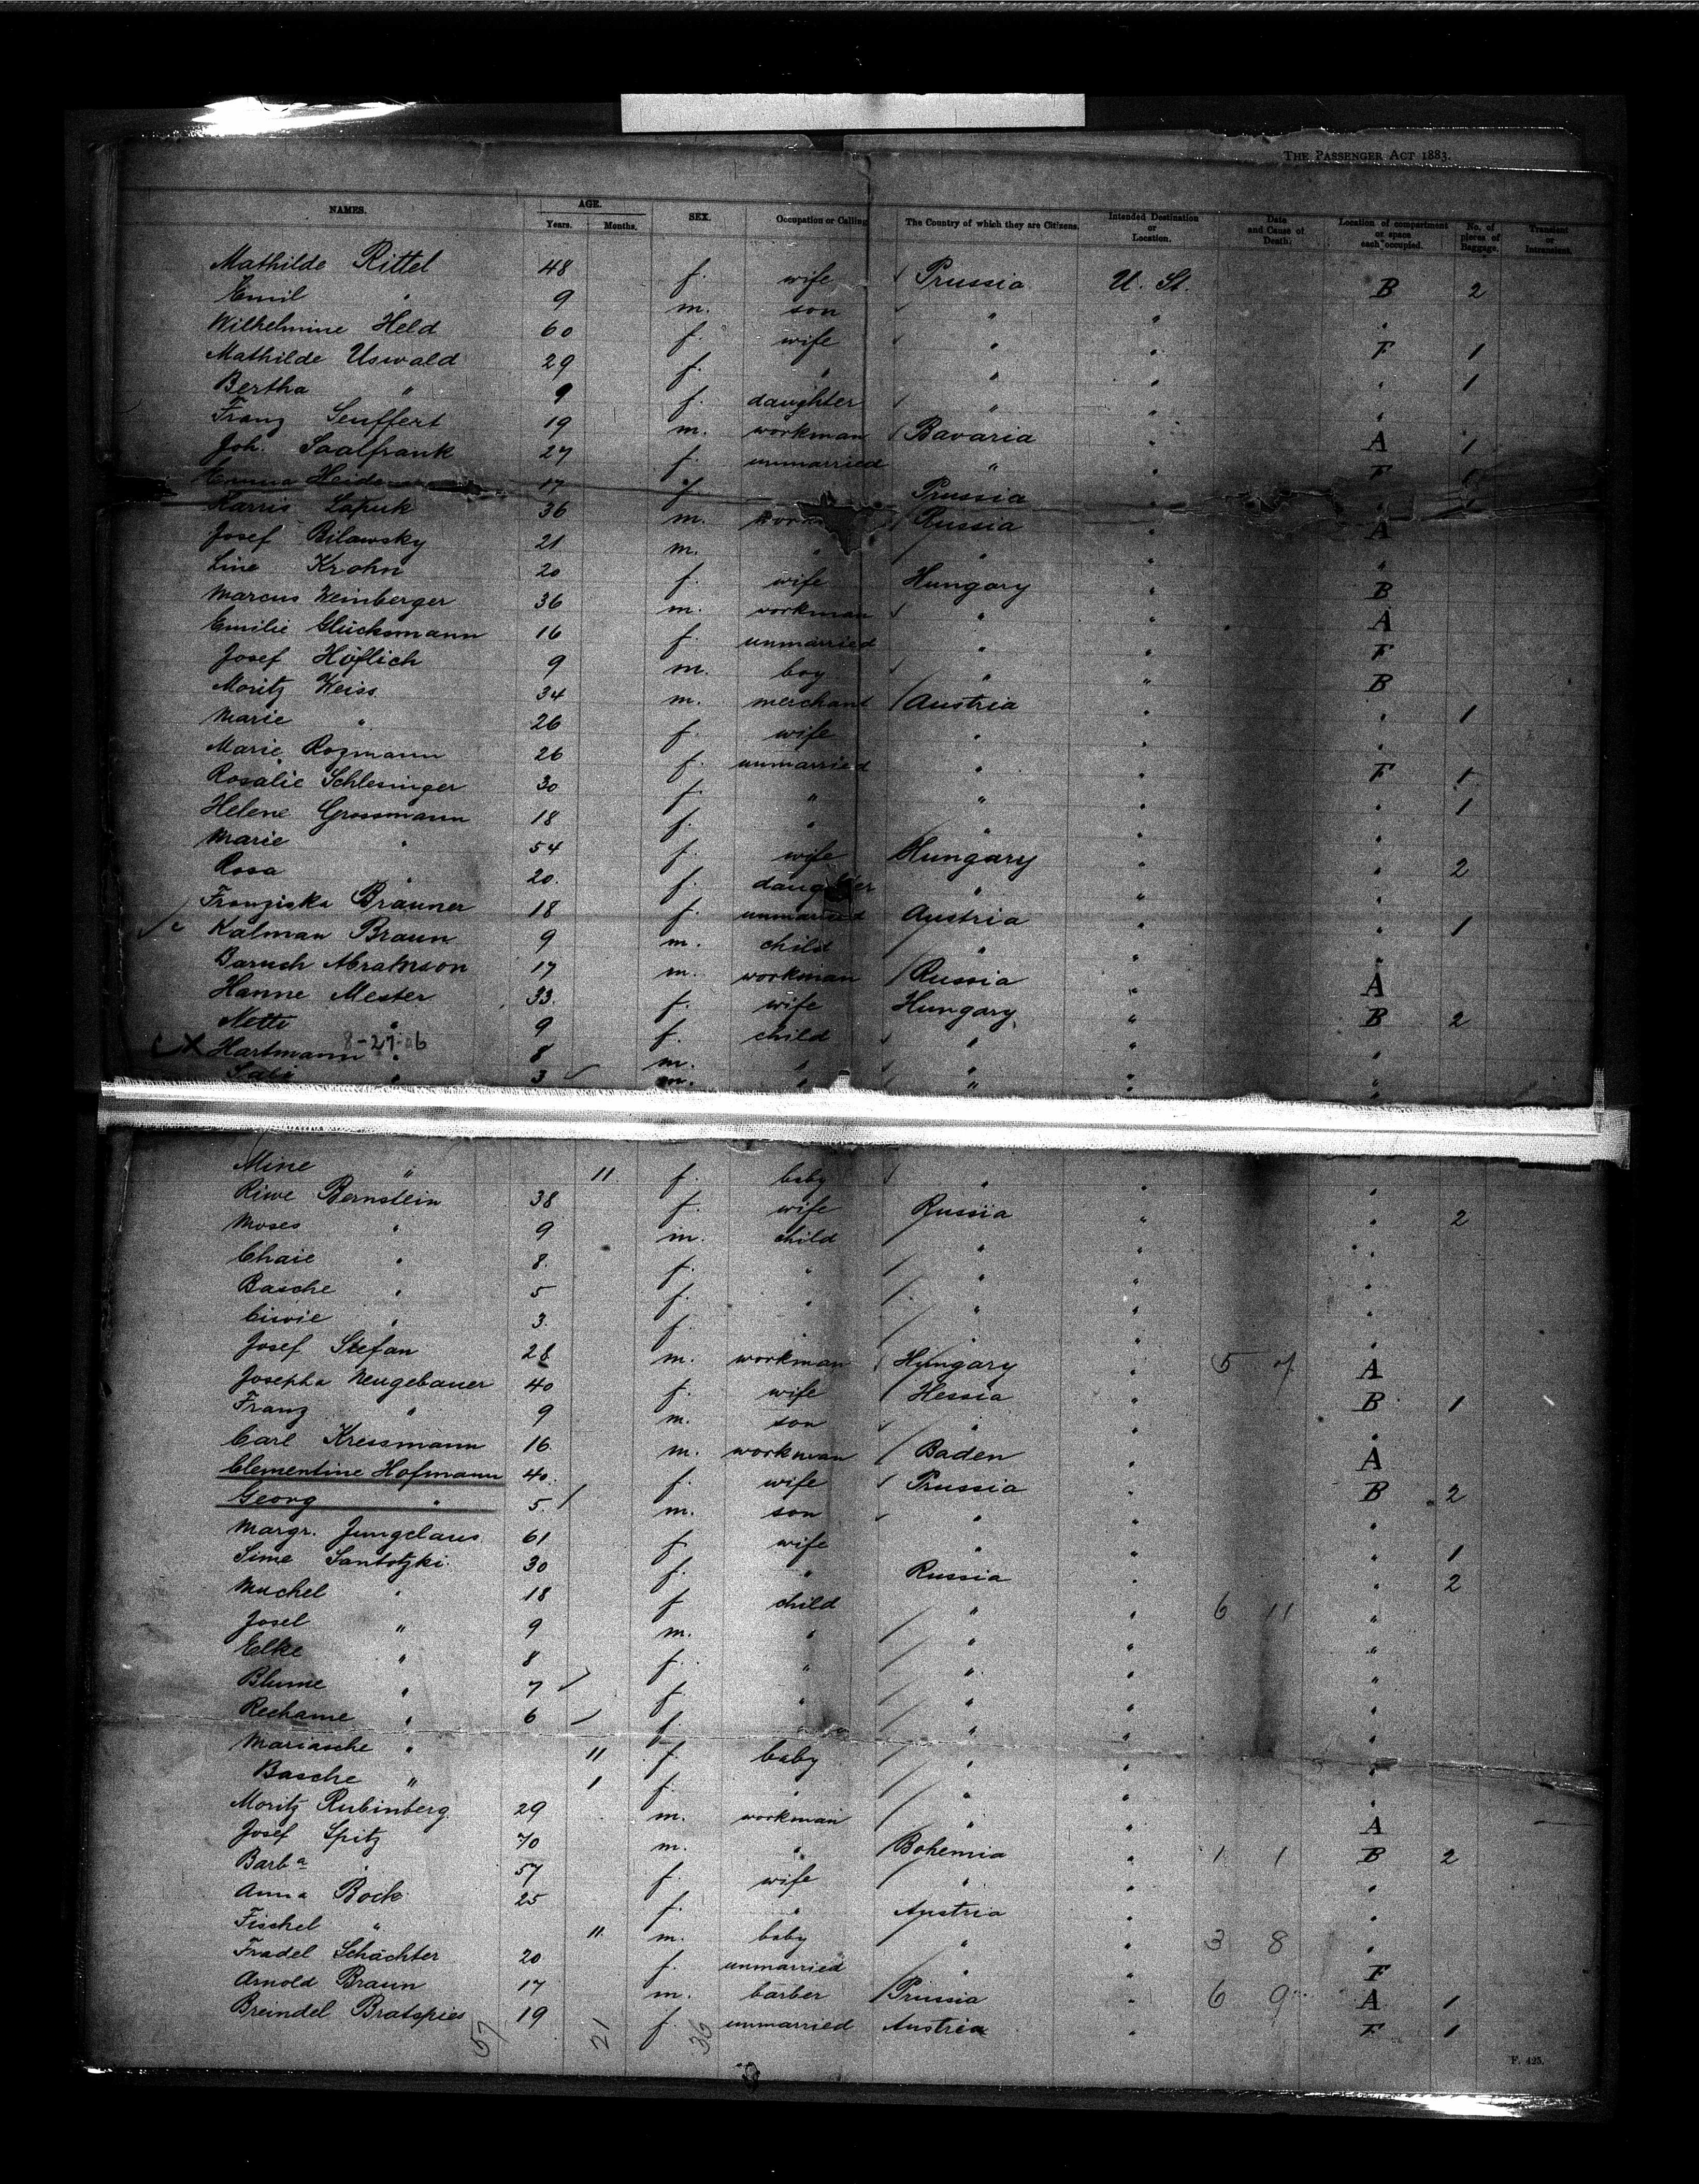 THE PASSENGER ACT 1883.
NAMES. AGE. Years. Months. SEX. Occupation or Calling The Country of which they are Citizens. Intended Destination or Location. Date and Cause of Death. Location of compartment or space each occupied. No. of pieces of Baggage. Transient or Intransient.
Mathilde Rittel 48 f. wife Prussia U. St. B 2
Emil " 9 m. son " " "
Wilhelmine Held 60 f. wife " " F 1
Mathilde Uswald 29 f. " " " " 1
Bertha " 9 f. daughter " " "
Franz Seuffert 19 m. workman Bavaria " A 1
Joh. Saalfrank 27 f. unmarried " " F
Emma Heide 17 f Prussia " "
Harris Lapuk 36 m. Russia " A
Josef Bilawsky 21 m. " " " "
Line Krohn 20 f. wife Hungary " B
Marcus Weinberger 36 m. workman " " A
Emilie Glücksmann 16 f. unmarried " " F
Josef Höflich 9 m. boy " " B
Moritz Weiss 34 m. merchant Austria " " 1
Marie " 26 f. wife " " "
Marie Rozmann 26 f. unmarried " " F 1
Rosalie Schlesinger 30 f. " " " " 1
Helene Grossmann 18 f. " " " "
Marie " 54 f. wife Hungary " " 2
Rosa " 20. f. daughter " " "
Franziska Brauner 18 f. unmarried Austria " " 1
Kalman Braun 9 m. child " " "
Baruch Abramson 17 m. workman Russia " A
Hanne Mester 33. f. wife Hungary " B 2
Netti " 9 f. child " " "
X Hartmann " 8-27-06 8 m. " " " "
Sali " 3 m. " " " "
Mine " 11 f. baby " " "
Riwe Bernstein 38 f. wife Russia " " 2
Moses " 9 m. child " " "
Chaie " 8. f. " " " "
Basche " 5 f. " " " "
Ciwie " 3. f. " " " "
Josef Stefan 28 m. workman Hungary " 5 7 A
Josepha Neugebauer 40 f. wife Hessia " B 1
Franz " 9 m. son " " "
Carl Kressmann 16 m. workman Baden " A
Clementine Hofmann 40. f wife Prussia " B 2
Georg " 5. m. son " " "
Margr. Jungclaus 61 f wife " " " 1
Sime Santotzki 30 f. " Russia " " 2
Muchel " 18 f child " " 6 11 "
Josel " 9 m. " " " "
Elke " 8 f. " " " "
Blume " 7 f " " " "
Rechame " 6 f. " " " "
Mariasche " 11 f. baby " " "
Basche " 1 f. " " " "
Moritz Rubinberg 29 m. workman " " A
Josef Spitz 70 m. " Bohemia " 1 1 B 2
Barba " 57 f. wife " " "
Anna Bock 25 f. " Austria " "
Fischel " 11 m. baby " " 3 8 "
Fradel Schächter 20 f. unmarried " " F
Arnold Braun 17 m. barber Prussia " 6 9 A 1
Breindel Bratspies 19 f. unmarried Austria " F 1
57 21 36
F. 425.